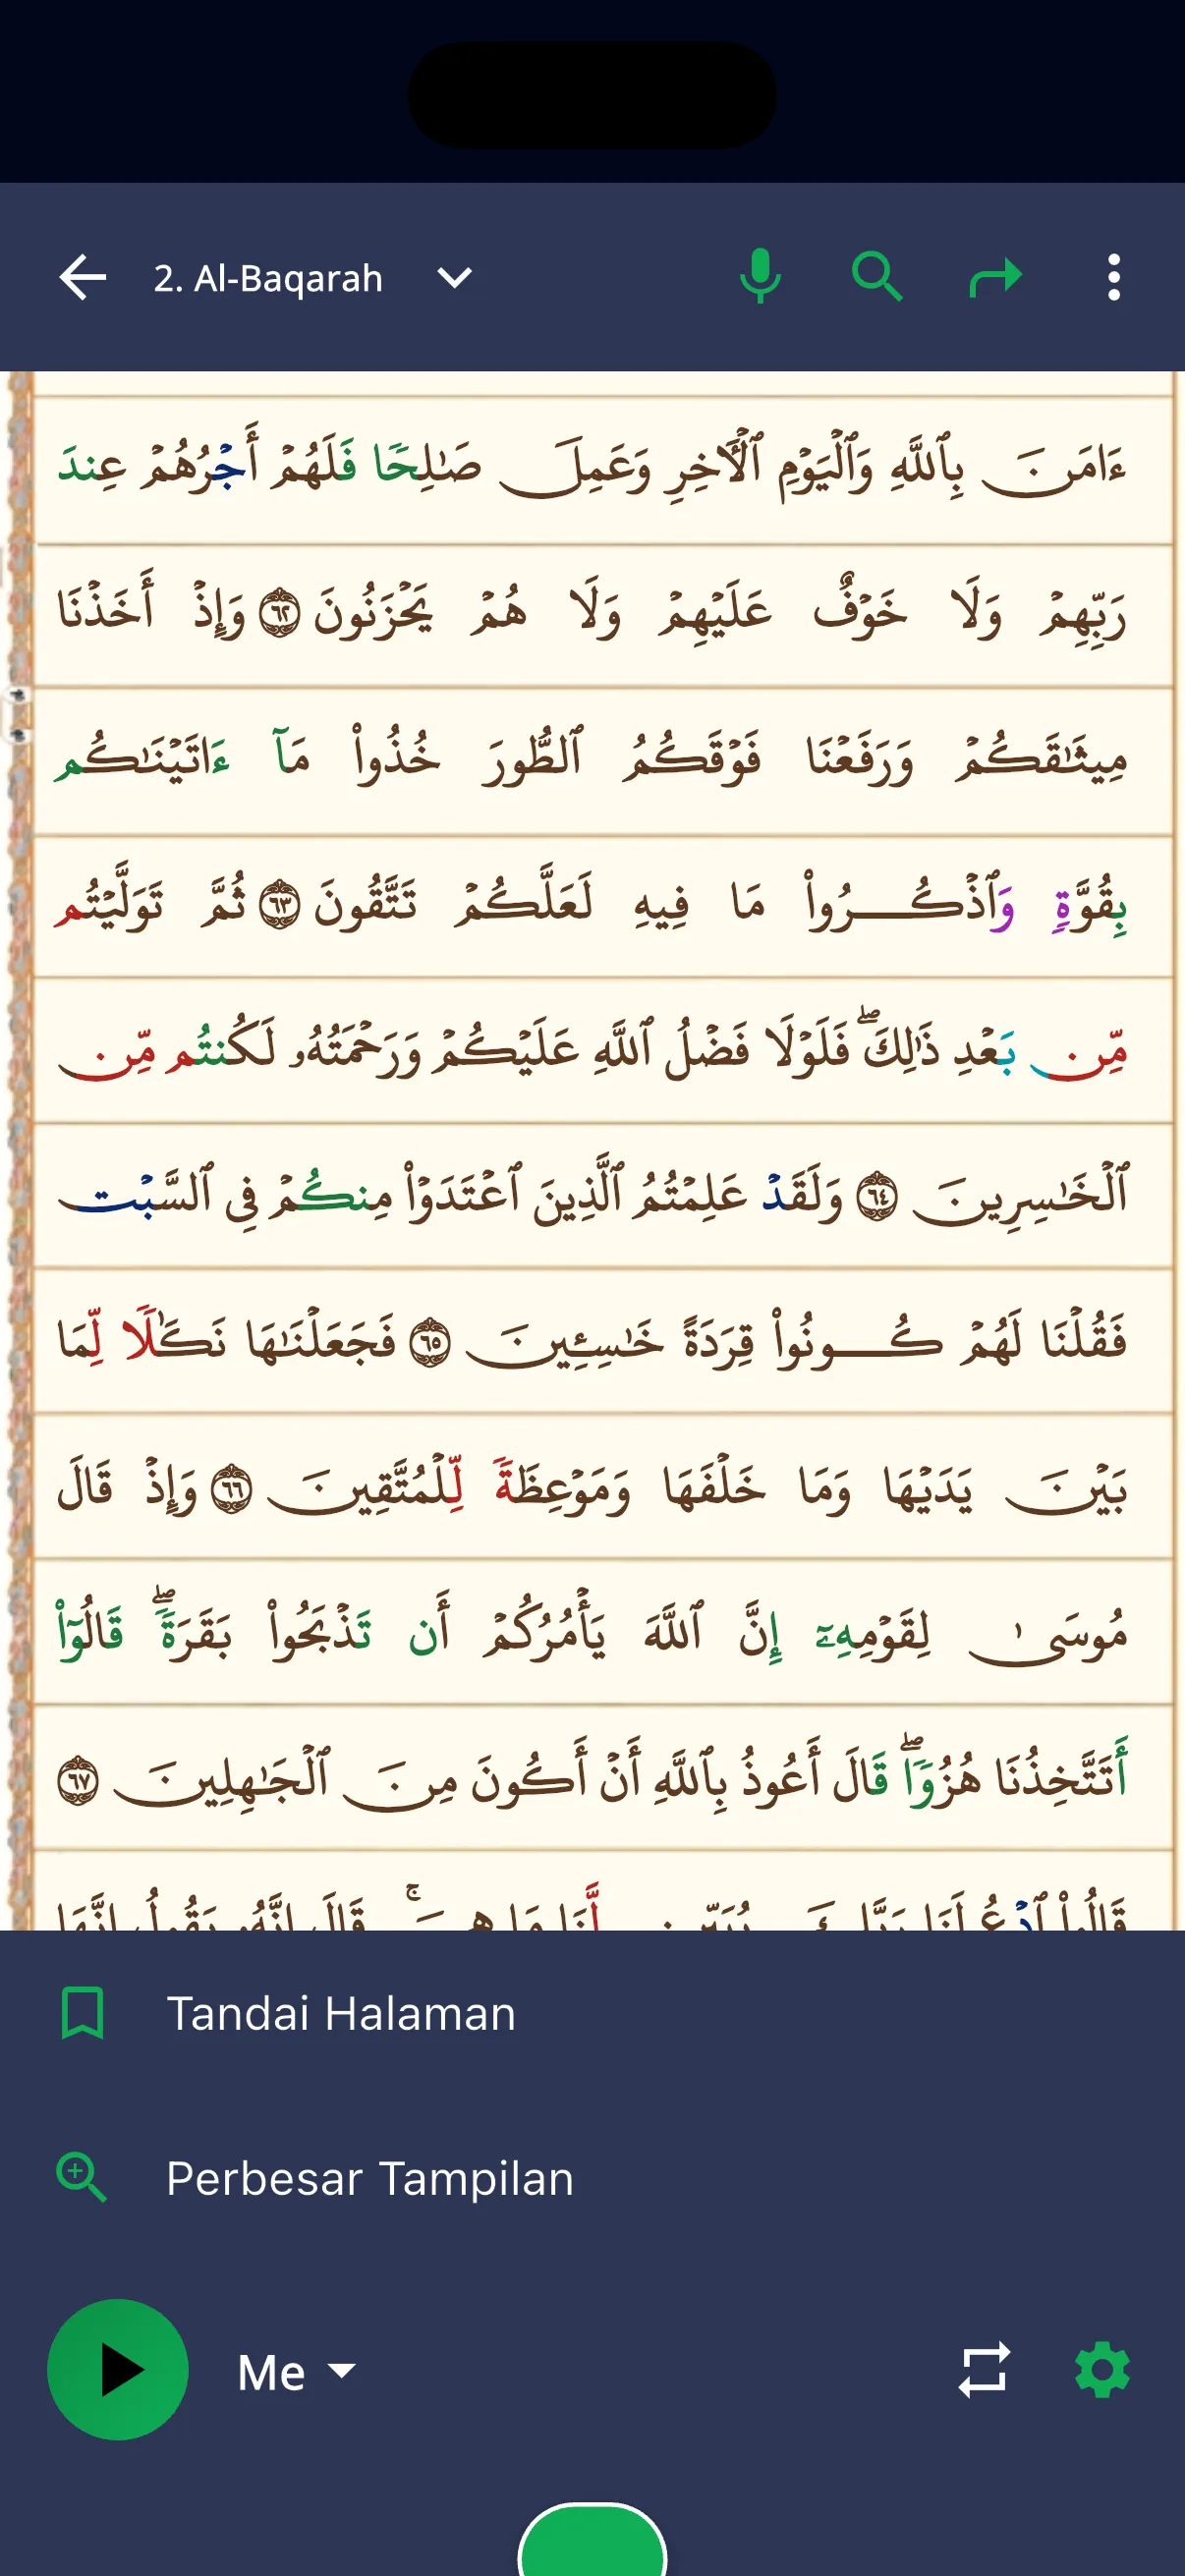 2. Al-Baqarah
ءَامَنَ بِٱللَّهِ وَٱلْيَوْمِ ٱلْأَخِرِ وَعَمِلَ صَـٰلِحًا فَلَهُمْ أَجْرُهُمْ عِندَ
رَبِّهِمْ وَلَا خَوْفٌ عَلَيْهِمْ وَلَا هُمْ يَحْزَنُونَ ٦٢ وَإِذْ أَخَذْنَا
مِيثَـٰقَكُمْ وَرَفَعْنَا فَوْقَكُمُ ٱلطُّورَ خُذُوا۟ مَآ ءَاتَيْنَـٰكُم
بِقُوَّةٍ وَٱذْكُرُوا۟ مَا فِيهِ لَعَلَّكُمْ تَتَّقُونَ ٦٣ ثُمَّ تَوَلَّيْتُم
مِّن بَعْدِ ذَٰلِكَ ۖ فَلَوْلَا فَضْلُ ٱللَّهِ عَلَيْكُمْ وَرَحْمَتُهُۥ لَكُنتُم مِّنَ
ٱلْخَـٰسِرِينَ ٦٤ وَلَقَدْ عَلِمْتُمُ ٱلَّذِينَ ٱعْتَدَوْا۟ مِنكُمْ فِى ٱلسَّبْت
فَقُلْنَا لَهُمْ كُونُوا۟ قِرَدَةً خَـٰسِـِٔينَ ٦٥ فَجَعَلْنَـٰهَا نَكَـٰلًا لِّمَا
بَيْنَ يَدَيْهَا وَمَا خَلْفَهَا وَمَوْعِظَةً لِّلْمُتَّقِينَ ٦٦ وَإِذْ قَالَ
مُوسَىٰ لِقَوْمِهِۦٓ إِنَّ ٱللَّهَ يَأْمُرُكُمْ أَن تَذْبَحُوا۟ بَقَرَةً ۖ قَالُوٓا۟
أَتَتَّخِذُنَا هُزُوًا ۖ قَالَ أَعُوذُ بِٱللَّهِ أَنْ أَكُونَ مِنَ ٱلْجَـٰهِلِينَ ٦٧
قَالُوا۟ ٱدْعُ لَنَا رَبَّكَ يُبَيِّن لَّنَا مَا هِىَ ۚ قَالَ إِنَّهُۥ يَقُولُ إِنَّهَا
Tandai Halaman
Perbesar Tampilan
Me